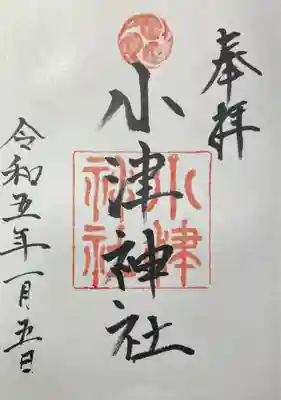 奉拝
小津神社
小津
神社
令和五年一月五日